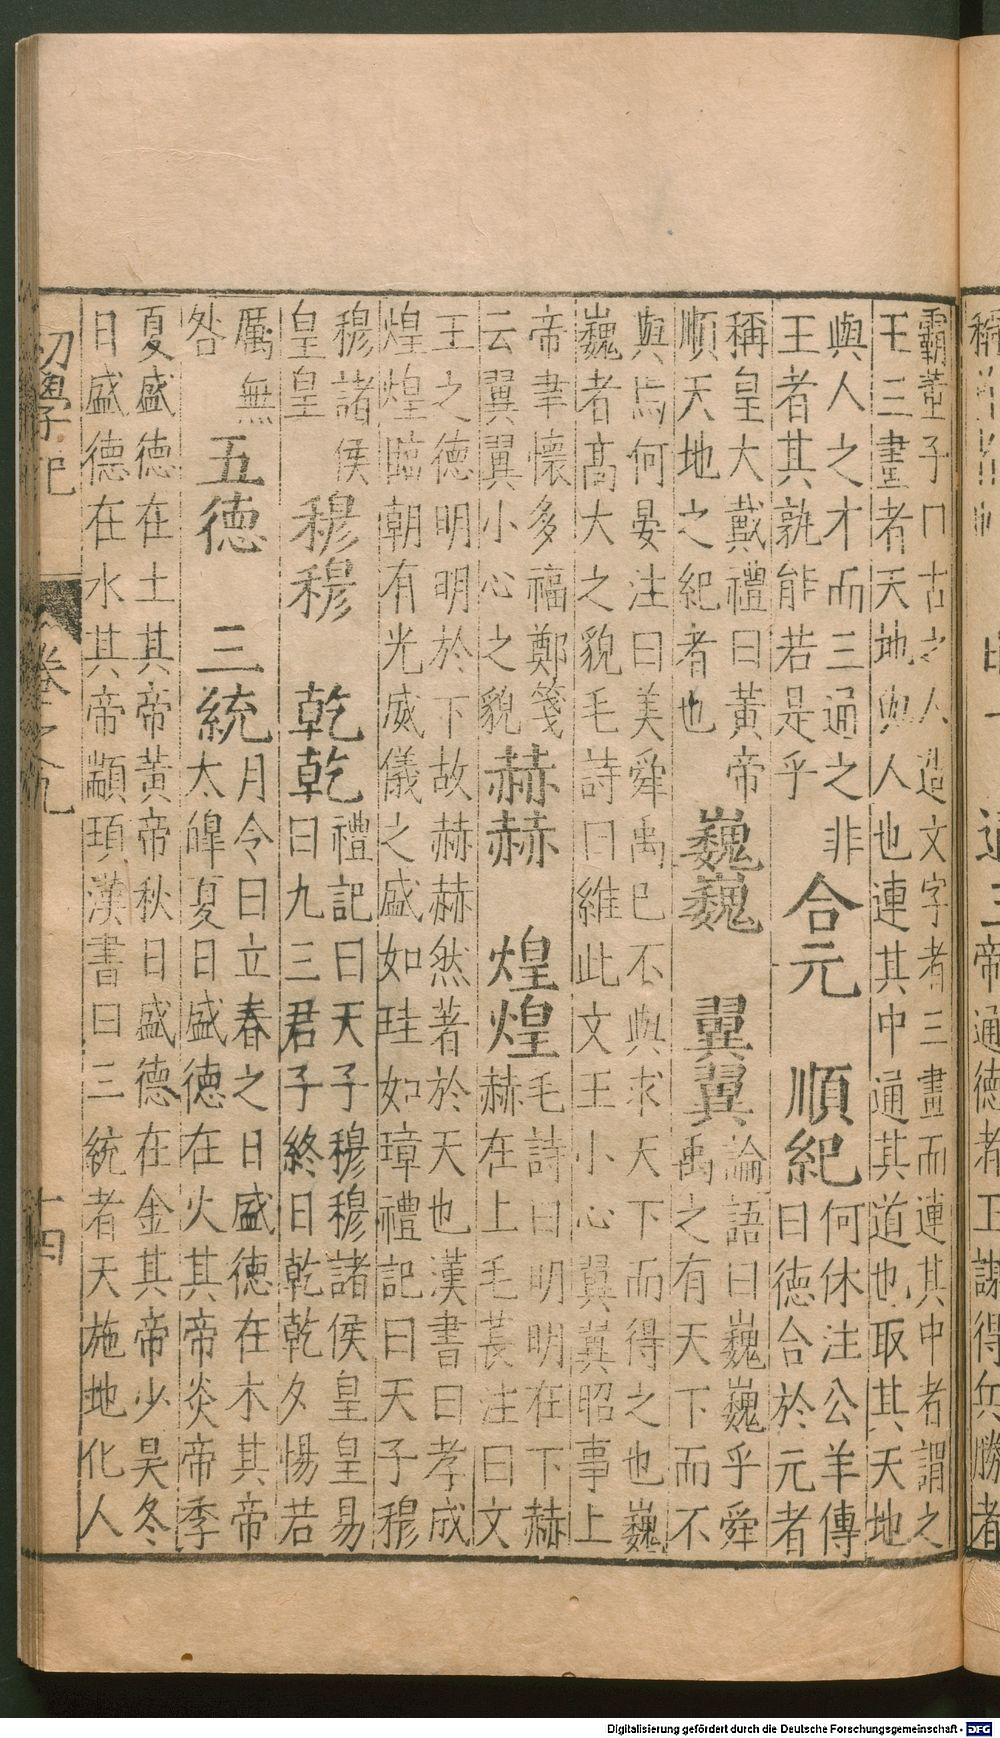 霸董子曰古之人造文字者三畫而連其中者謂之
王三畫者天地與人也連其中通其道也取其天地
與人之才而三通之非
王者其孰能若是乎
合元　順紀
何休注公羊傳
曰德合於元者
稱皇大戴禮曰黃帝
順天地之紀者也
巍巍　翼翼
論語曰巍巍乎舜
禹之有天下而不
與焉何晏注曰美舜禹已不與求天下而得之也巍
巍者高大之貌毛詩曰維此文王小心翼翼昭事上
帝聿懷多福鄭箋
云翼翼小心之貌
赫赫　煌煌
毛詩曰明明在下赫
赫在上毛萇注曰文
王之德明明於下故赫赫然著於天也漢書曰孝成
煌煌臨朝有光威儀之盛如珪如璋禮記曰天子穆
穆諸侯
皇皇
穆穆　乾乾
禮記曰天子穆穆諸侯皇皇易
曰九三君子終日乾乾夕惕若
厲無
咎
五德　三統
月令曰立春之日盛德在木其帝
太皥夏日盛德在火其帝炎帝季
夏盛德在土其帝黃帝秋日盛德在金其帝少昊冬
日盛德在水其帝顓頊漢書曰三統者天施地化人
初學記　卷之九　十四
帝通德者王謀得兵勝者
Digitalisierung gefördert durch die Deutsche Forschungsgemeinschaft - DFG